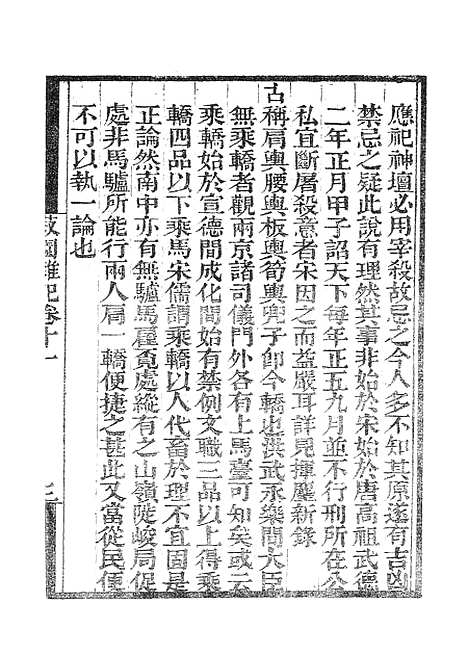 應祀神壇必用宰殺故忌之今人多不知其原遂有吉凶
禁忌之疑此說有理然其事非始於宋始於唐高祖武德
二年正月甲子詔天下每年正五九月並不行刑所在公
私宜斷屠殺意者宋因之而益嚴耳詳見揮麈新錄
古稱肩輿腰輿板輿筍輿兜子卽今轎也洪武永樂間大臣
無乘轎者觀兩京諸司儀門外各有上馬臺可知矣或云
乘轎始於宣德間成化間始有禁例文職三品以上得乘
轎四品以下乘馬宋儒謂乘轎以人代畜於理不宜固是
正論然南中亦有無驢馬雇覓處縱有之山嶺陡峻局促
處非馬驢所能行兩人肩一轎便捷之甚此又當從民便
不可以執一論也
菽園雜記卷十一